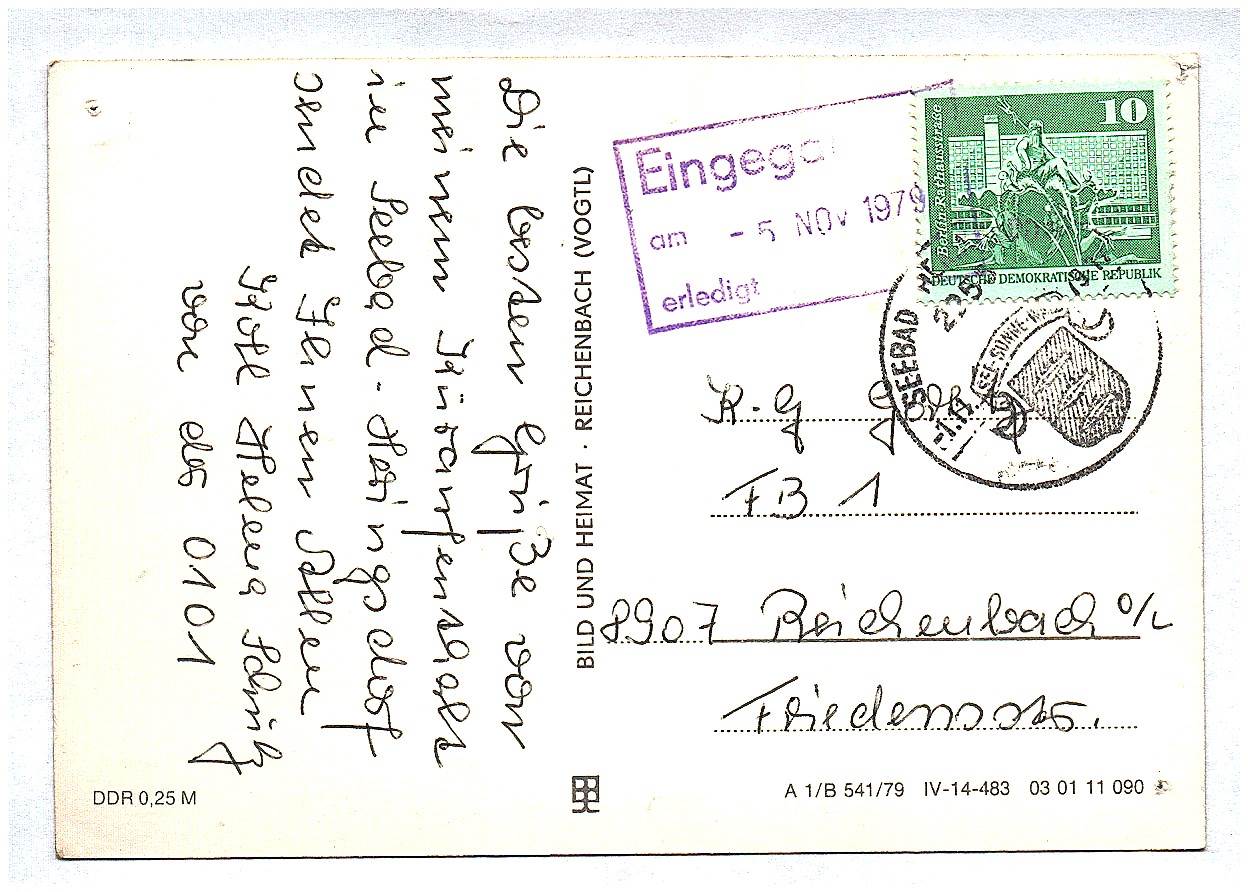 Die besten Grüße von
meinem Kuraufenthalt
in Seebad-Heringsdorf
sendet Ihnen Allen
Koll Helena
von der 0101
BILD UND HEIMAT · REICHENBACH (VOGTL)
Eingega
am - 5 NOV 1979
erledigt
10
Berlin-Rathausstraße
DEUTSCHE DEMOKRATISCHE REPUBLIK
SEEBAD HE
225
SEE-SONNE-WA
-1.11.
K.G
FB 1
8907 Reichenbach O/L
Friedensstr.
DDR 0,25 M
A 1/B 541/79 IV-14-483 03 01 11 090